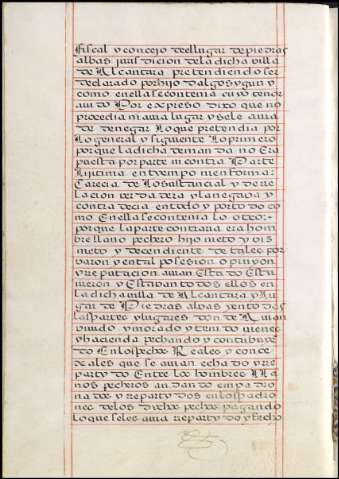 fiscal y concejo del lugar de piedras
albas jurisdicion de la dicha villa
de Alcantara pretendiendo ser
declarado por hijo dalgo segun y
como en ella se contenia cuyo tenor
auido Por expreso dixo que no
procedia ni auia lugar y se le auia
de denegar Lo que pretendia por
Lo general y siguiente Lo primero
porque la dicha demanda no Era
puesta por parte ni contra Parte
Lijitima en tiempo ni en forma:
Carecia de Lo sustancial y de re
lacion verdadera y la negaua y
contradecia en todo y por todo co
mo En ella se contenia lo otro:-
porque la parte contraria era hom
bre llano pechero hijo nieto y vis
nieto y decendiente de tales por
varon y en tal posesion opinyon
y reputacion auian Estado Estu
uieron y Estauan todos ellos en
la dicha villa de Alcantara y lu
gar de Piedras albas y en todas
las partes y lugares don de A uian
viuido y morado y tenido uienes
y hacienda pechando y contribuye
do En los pechos Reales y conce
xales que se auian echado y re
partydo Entre los hombres lla
nos pecheros andando empadro
nados y repartydos en los padro
nes de los dichos pechos pagando
Lo que se les auia repartydo y hecho